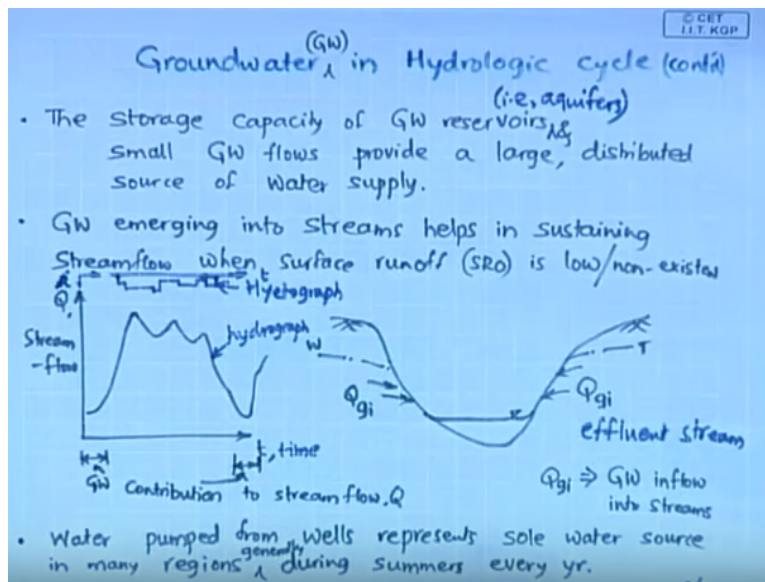 © CET
I.I.T. KGP
Groundwater (GW) in Hydrologic cycle (contd)
(i.e, aquifers)
• The storage capacity of GW reservoirs &
small GW flows provide a large, distributed
source of water supply.
• GW emerging into streams helps in sustaining
streamflow when surface runoff (SRO) is low/non-existent
t
Hyetograph
Q,
Stream
-flow
hydrograph
W
T
Qgi
Qgi
effluent stream
t, time
GW Contribution to stream flow, Q
Qgi ⇒ GW inflow
into streams
• Water pumped from wells represents sole water source
in many regions generally during summers every yr.